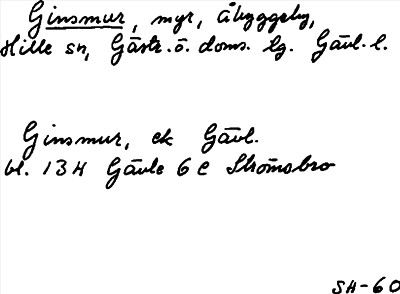 Ginsmur, myr, Åbyggeby,
Hille sn, Gästr. ö. doms. lg. Gävl. l.
Ginsmur, ek Gävl.
bl. 13 H Gävle 6 c Strömsbro
SH-60